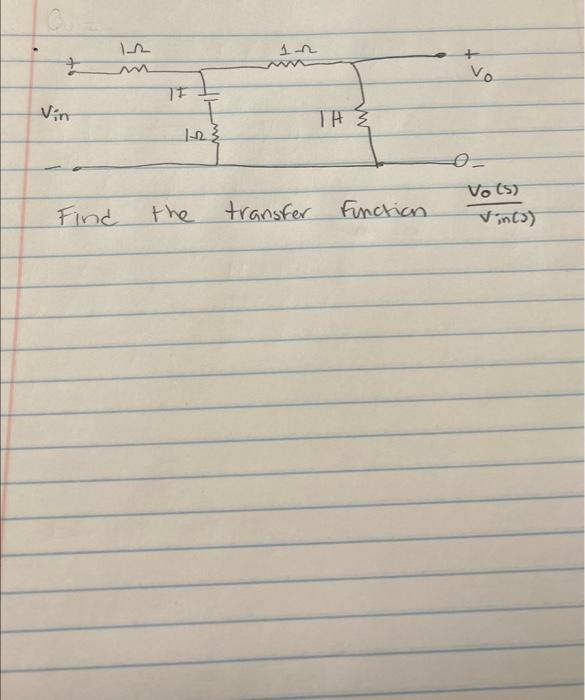 1Ω 1Ω
+ +
Vo
1F
Vin 1H
1Ω
- -
Find the transfer function Vo(s)
Vin(s)